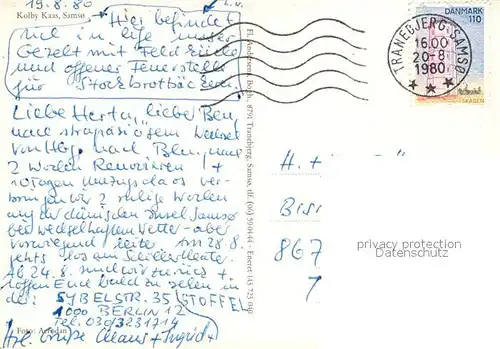 19.8.80
Kolby Kaas, Samsø
Hier befindet
sich in life unser
Gezelt mit Feld
und offener Feuerstelle
für Stockbrotbäckerei.
Liebe Herta, liebe Ben,
nach strapaziösem Wechsel
von Hbg. nach Bln., nach
2 Wochen Renovieren +
10 Tagen Umzugs ver-
bringen wir 2 ruhige Wochen
auf der dänischen Insel Samsø
bei wechselhaftem Wetter - aber
vorwiegend heiter. Am 28.8.
gehts los am Schillertheater.
Ab 24.8. sind wir zurück +
hoffen Euch bald zu sehen in
der: SYBELSTR. 35 (STOFFEL)
1000 BERLIN 12
Tel. 030/3231714
Hrl. Grüße Claus + Ingrid
Foto: Aerodan
8791 Tranebjerg, Samsø, tlf. (06) 59 04 44 - Eneret
DANMARK
110
SKAGEN
TRANEBJERG, SAMSØ
16.00
20-8
1980
H. +
BISI
867
7
privacy protection
Datenschutz